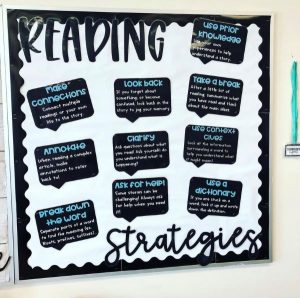 READING
use prior
knowledge
use your own
experiences to help
understand a story.
make
connections
Connect multiple
readings or your own
life to the story.
Look back
If you forget about
something or become
confused, look back in the
story to jog your memory.
Take a break
After a little bit of
reading,
you have read and think
about the main idea.
Annotate
When reading a complex
article, make
annotations to refer
back to.
Clarify
Ask questions about what
you read. Ask yourself, do
you understand what is
happening?
use context
clues
Look at the information
surrounding a word to
help you understand what
it might mean.
Break down
the word
Separate parts of a word
to find the meaning (ex.
Roots, prefixes, suffixes)
Ask for help!
Some stories can be
challenging! Always ask
for help when you need
it!
use a
dictionary!
If you are stuck on a
word, look it up and write
down the definition.
Strategies